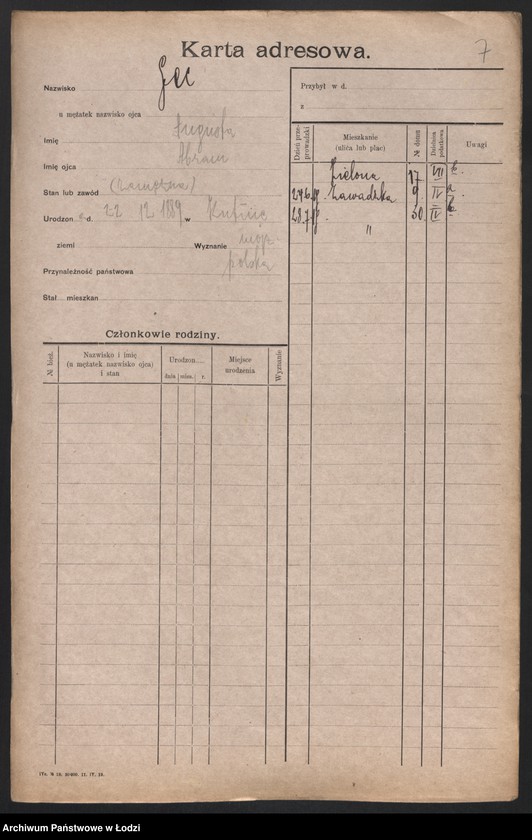 Karta adresowa.
7
Nazwisko
u mężatek nazwisko ojca
Imię Augusta
Imię ojca Abram
Stan lub zawód (zamężna)
Urodzon a d. 22 12 1889 w Kutnie
ziemi Wyznanie mojż.
Przynależność państwowa polska
Stał mieszkan
Przybył w d.
z
Dzień przeprowadzki
Mieszkanie (ulica lub plac)
№ domu
Dzielnica podatkowa
Uwagi
Zielona 17 VII
Zawadzka 9 IV
28.7 " 30 IV
Członkowie rodziny.
№ bież.
Nazwisko i imię
(u mężatek nazwisko ojca)
i stan
Urodzon
dnia mies. r.
Miejsce
urodzenia
Wyznanie
Archiwum Państwowe w Łodzi